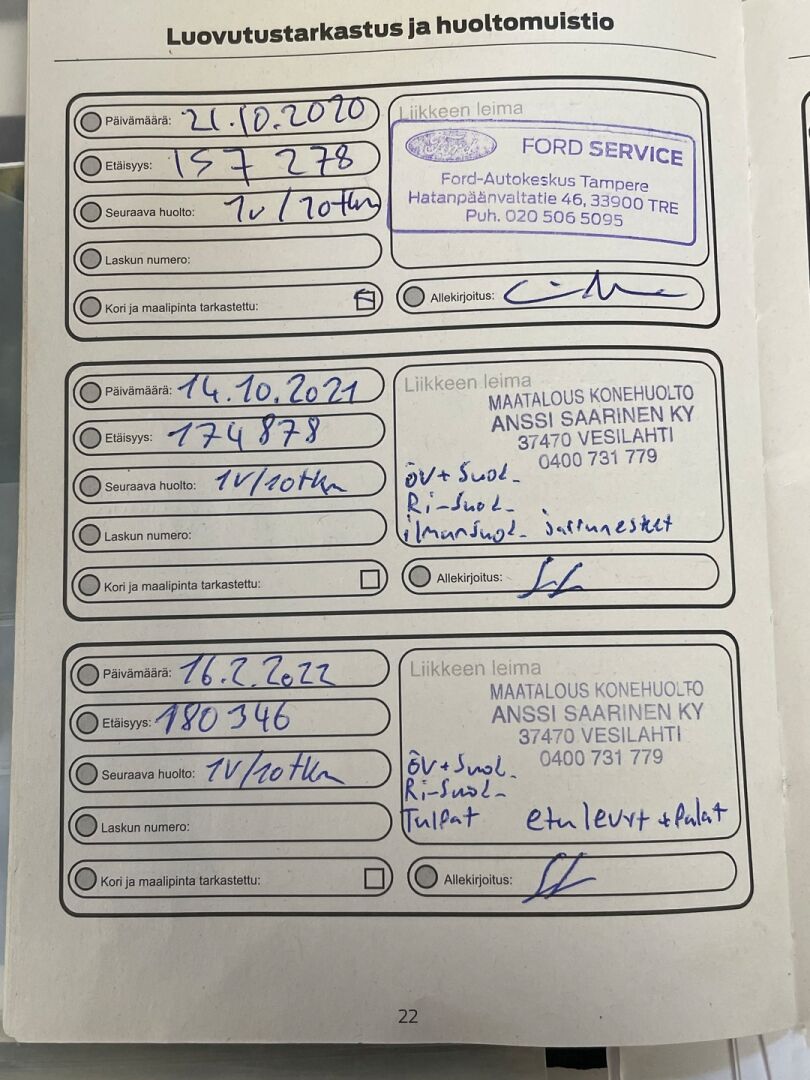 Luovutustarkastus ja huoltomuistio
Päivämäärä: 21.10.2020
Etäisyys: 157 278
Seuraava huolto: 1v/20tkm
Laskun numero:
Kori ja maalipinta tarkastettu:
Liikkeen leima
Ford
FORD SERVICE
Ford-Autokeskus Tampere
Hatanpäänvaltatie 46, 33900 TRE
Puh. 020 506 5095
Allekirjoitus:
Päivämäärä: 14.10.2021
Etäisyys: 174 878
Seuraava huolto: 1V/10tkm
Laskun numero:
Kori ja maalipinta tarkastettu:
Liikkeen leima
MAATALOUS KONEHUOLTO
ANSSI SAARINEN KY
37470 VESILAHTI
0400 731 779
ÖV+Suod.
Ri-Suod.
ilmansuod. jarrunesteet
Allekirjoitus:
Päivämäärä: 16.2.2022
Etäisyys: 180 346
Seuraava huolto: 1V/10tkm
Laskun numero:
Kori ja maalipinta tarkastettu:
Liikkeen leima
MAATALOUS KONEHUOLTO
ANSSI SAARINEN KY
37470 VESILAHTI
0400 731 779
ÖV+Suod.
Ri-Suod.
Tulpat etulevyt + Palat
Allekirjoitus:
22